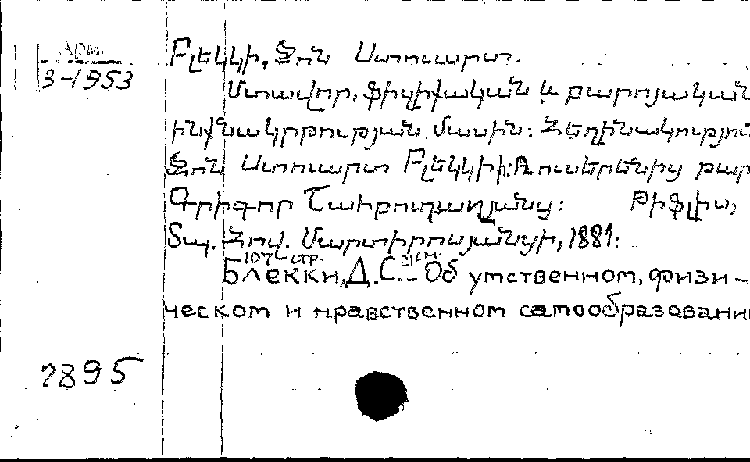 Арм.
3-1953
Բլեկկի, Ջոն Ստուարտ.
Մտավոր, ֆիզիկական և բարոյական
ինքնակրթության մասին: Հեղինակությու
Ջոն Ստուարտ Բլեկկիի: Ռուսերենից թար
Գրիգոր Շահբուդաղյանց: Թիֆլիս,
Տպ. Հով. Մարտիրոսյանցի, 1881:
107 стр.
Блекки, Д. С. Об умственном, физи-
ческом и нравственном самообразовании
7895